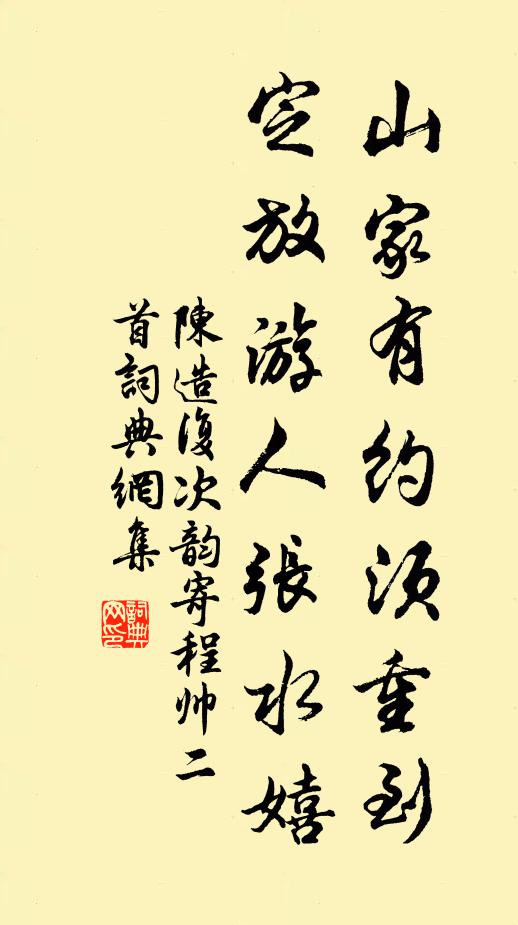 山家有約須重到
定放游人張水嬉
陳造復次韵寄程帅二
首詞典網集
詞典網印